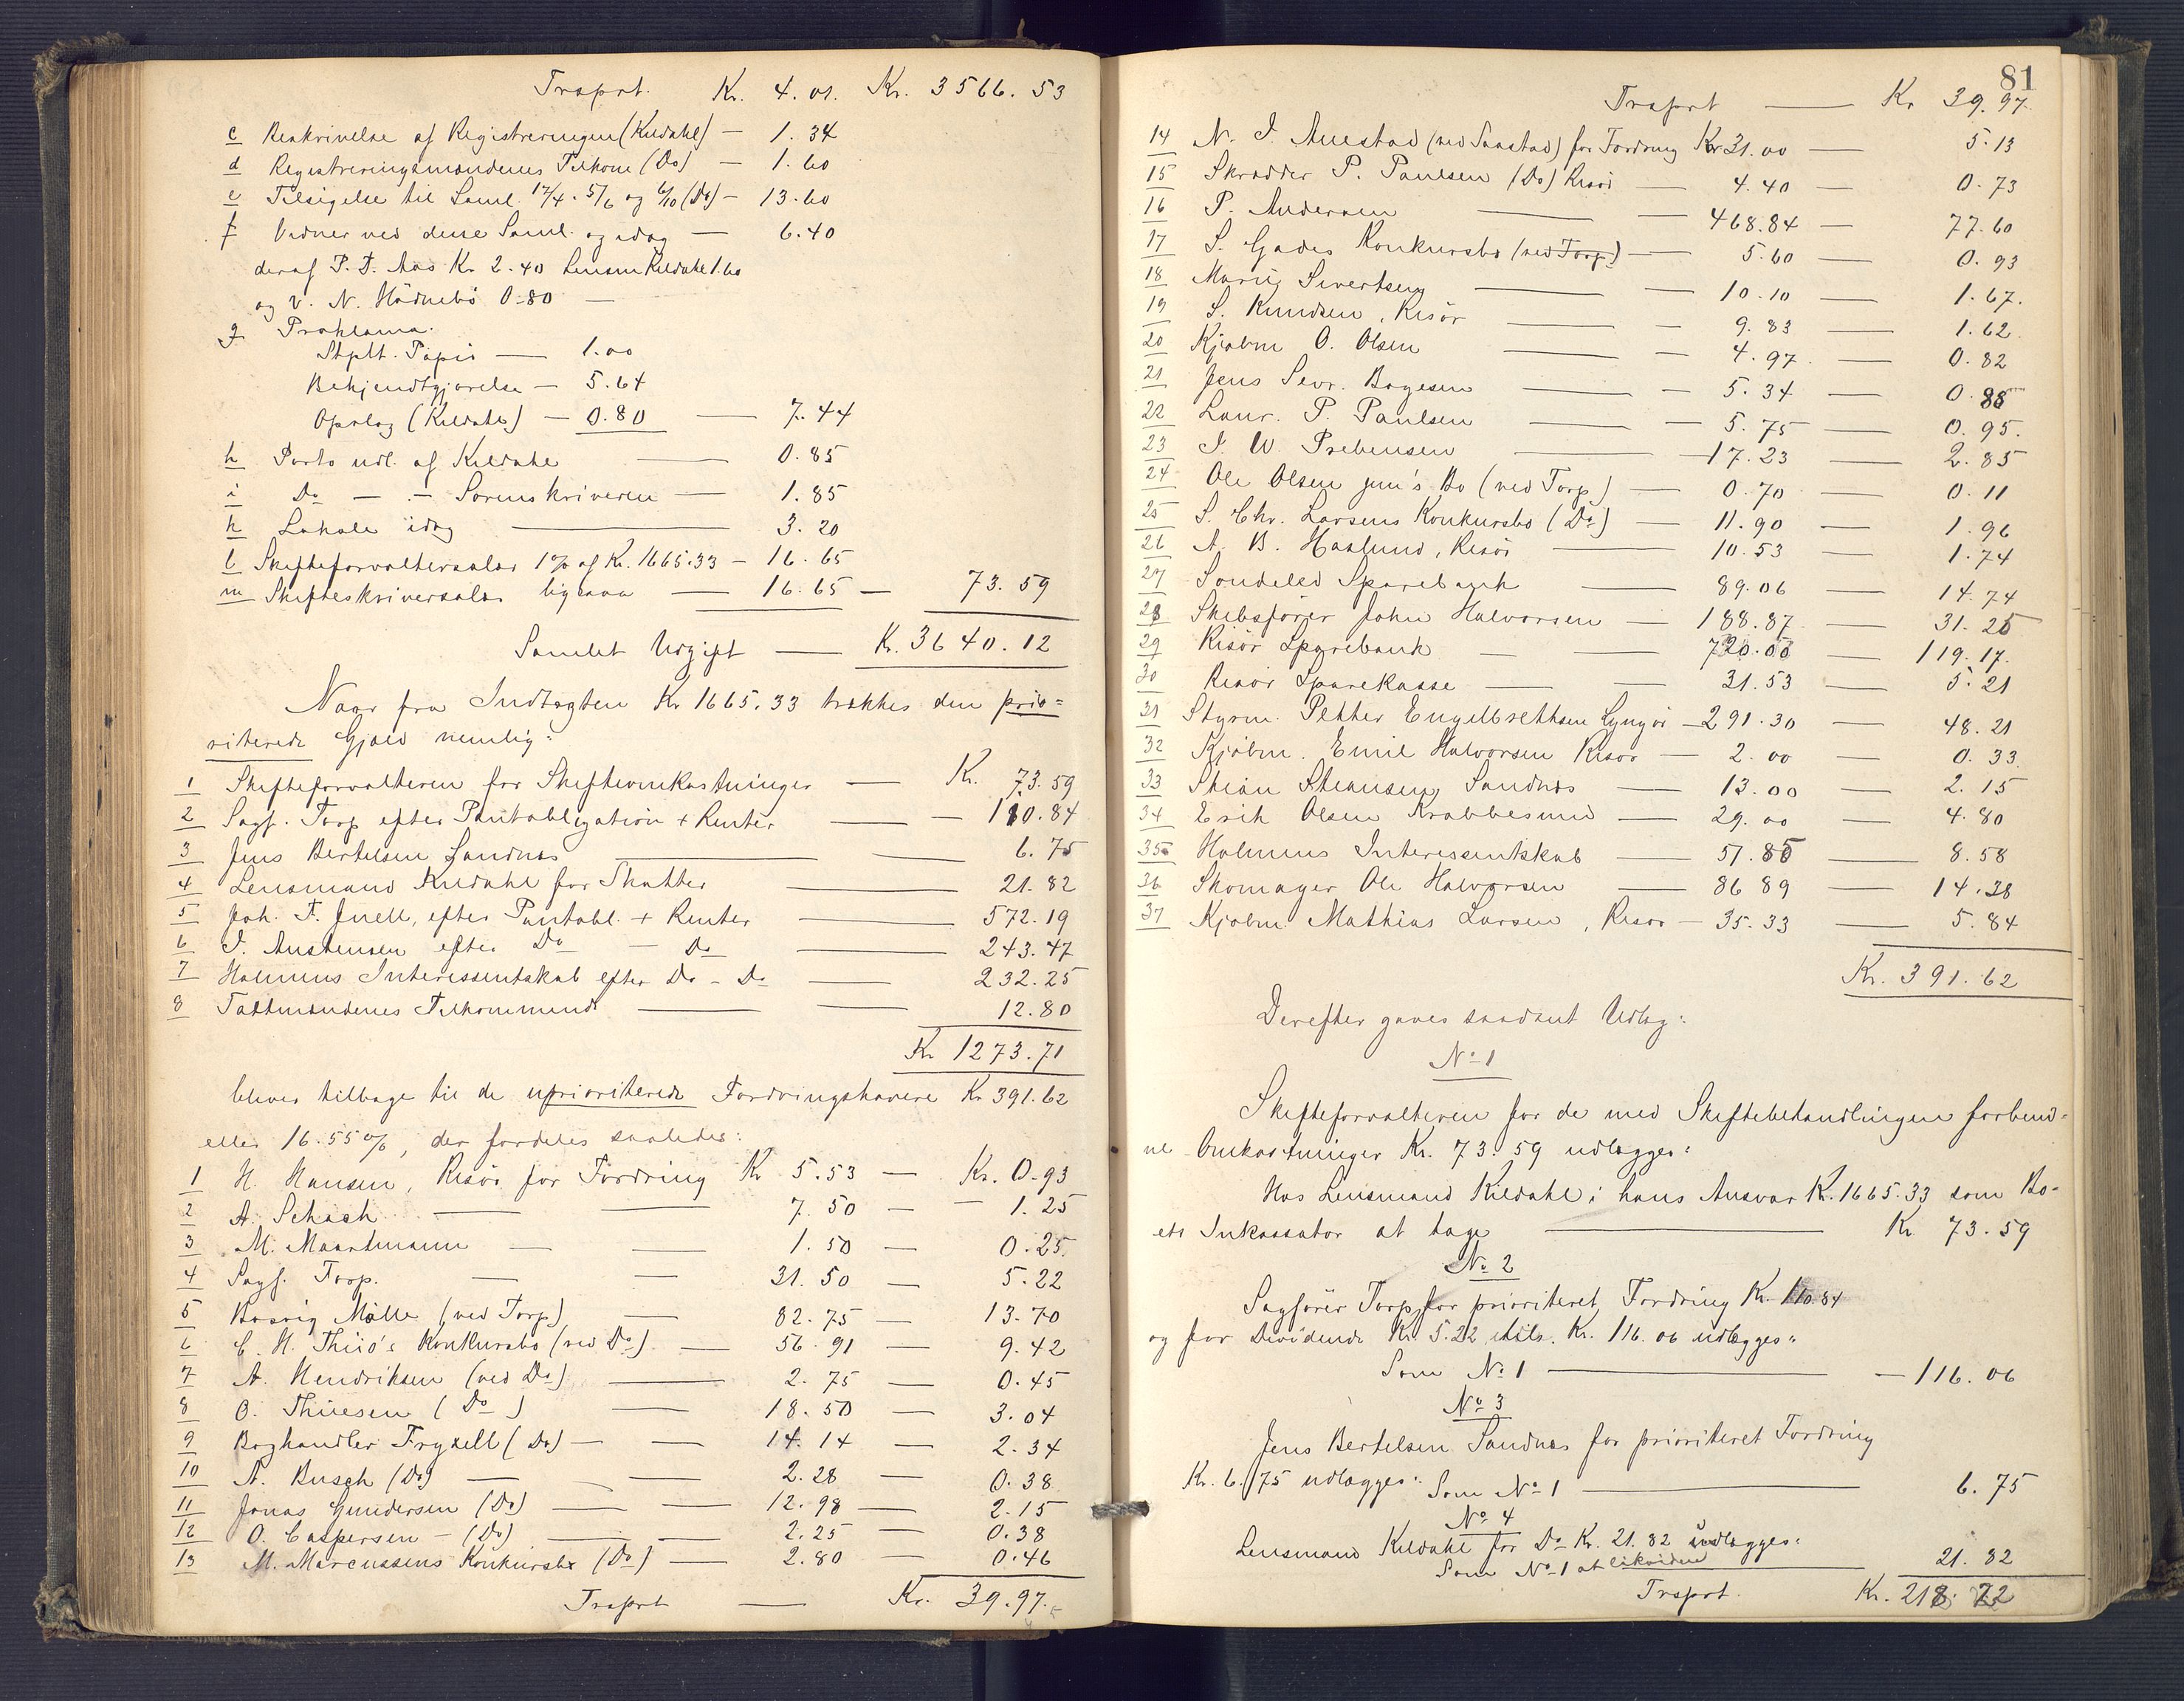 Trsprt. Kr. 4.01. Kr. 3566.53
c Renskrivelse af Registreringen (Kildahl) — 1.34
d Registreringsmændenes Tilkom (Do) — 1.60
e Tilsigelse til Saml. 17/4. 5/6 og 6/10 (Do) — 13.60
f Vidner ved disse Saml. og idag — 6.40
deraf P. T. Aas Kr. 2.40 Lensm Kildahl 1.60
og V. N. Hødnebø 0.80 —
g Proklama.
Stplt. Papir — 1.00
Bekjendtgjørelse — 5.64
Opslag (Kildahl) — 0.80 — 7.44
h Porto udl. af Kildahl — 0.85
i Do — — Sorenskriveren — 1.85
k Lokale idag — 3.20
l Skifteforvaltersalær 1% af Kr. 1665.33 — 16.65
m Skifteskriversalær ligesaa — 16.65 — 73.59
Samlet Udgift — Kr. 3640.12
Naar fra Indtægten Kr 1665.33 trækkes den prio=
riterede Gjæld nemlig:
1 Skifteforvalteren for Skifteomkostninger — Kr. 73.59
2 Sagf. Torp efter Pantobligation + Renter — 110.84
3 Jens Bertelsen Sandnæs — 6.75
4 Lensmand Kildahl for Skatter — 21.82
5 Joh. F. Juell, efter Pantobl. + Renter — 572.19
6 T. Austensen efter Do — Do — 243.47
7 Holmens Interessentskab efter Do - Do — 232.25
8 Taxtmændenes Tilkommende — 12.80
Kr 1273.71
bliver tilbage til de uprioriterede Fordringshavere Kr 391.62
eller 16.55%, der fordeles saaledes:
1 H. Hansen, Risør for Fordring Kr 5.53 — Kr. 0.93
2 A. Schach — 7.50 — 1.25
3 M. Maartmann — 1.50 — 0.25
4 Sagf. Torp. — 31.50 — 5.22
5 Bossvig Mølle (ved Torp) — 82.75 — 13.70
6 C. H. Thiis's Konkursbo (ved Do) — 56.91 — 9.42
7 A. Hendriksen (ved Do) — 2.75 — 0.45
8 O. Thuesen (Do) — 18.50 — 3.04
9 Boghandler Fryxell (Do) — 14.14 — 2.34
10 N. Busch (Do) — 2.28 — 0.38
11 Jonas Gundersen (Do) — 12.98 — 2.15
12 O. Caspersen — (Do) — 2.25 — 0.38
13 M. Marcussens Konkursbo (Do) — 2.80 — 0.46
Trsprt — Kr. 39.97.
81
Trsprt — Kr 39.97.
14 N. J. Auestad (ved Saastad) for Fordring Kr 31.00 — 5.13
15 Skrædder P. Paulsen (Do) Risør — 4.40 — 0.73
16 P. Andersen — 468.84 — 77.60
17 S. Gades Konkursbo (ved Torp) — 5.60 — 0.93
18 Marię Sivertsen — 10.10 — 1.67.
19 S. Knudsen, Risør — 9.83 — 1.62
20 Kjøbm O. Olsen — 4.97 — 0.82
21 Jens Sevr. Bogesen — 5.34 — 0.88
22 Laur. P. Paulsen — 5.75 — 0.95.
23 J. W. Prebensen — 17.23 — 2.85
24 Ole Olsen jun's Bo (ved Torp) — 0.70 — 0.11
25 S. Chr. Larsens Konkursbo (Do) — 11.90 — 1.96
26 A. B. Haslund, Risør — 10.53 — 1.74
27 Søndeled Sparebank — 89.06 — 14.74
28 Skibsfører John Halvorsen — 188.87 — 31.25
29 Risør Sparebank — 720.00 — 119.17.
30 Risør Sparekasse — 31.53 — 5.21
31 Styrm. Petter Engelbrethsen Lyngør — 291.30 — 48.21
32 Kjøbm. Emil Halvorsen Risør — 2.00 — 0.33
33 Stian Stiansen, Sandnæs — 13.00 — 2.15
34 Erik Olsen Krabbesund — 29.00 — 4.80
35 Holmens Interessentskab — 51.85 — 8.58
36 Skomager Ole Halvorsen — 86 89 — 14.38
37 Kjøbm. Mathias Larsen, Risør — 35.33 — 5.84
Kr. 391.62
Derefter gaves saadant Udlæg:
No 1
Skifteforvalteren for de med Skiftebehandlingen forbund-
ne Omkostninger Kr. 73.59 udlægges:
Hos Lensmand Kildahl i hans Ansvar Kr. 1665.33 som Bo-
ets Inkassator at tage — Kr 73.59
No 2
Sagfører Torp, for prioriteret Fordring Kr. 110.84
og for Dividende Kr. 5.22 tils. Kr. 116.06 udlægges:
Som No 1 — 116.06
No 3
Jens Bertelsen Sandnæs for prioriteret Fordring
Kr. 6.75 udlægges: Som No 1 — 6.75
No 4
Lensmand Kildahl for Do Kr. 21.82 udlægges:
Som No 1 at likvidere — 21.82
Trsprt. Kr. 218.22